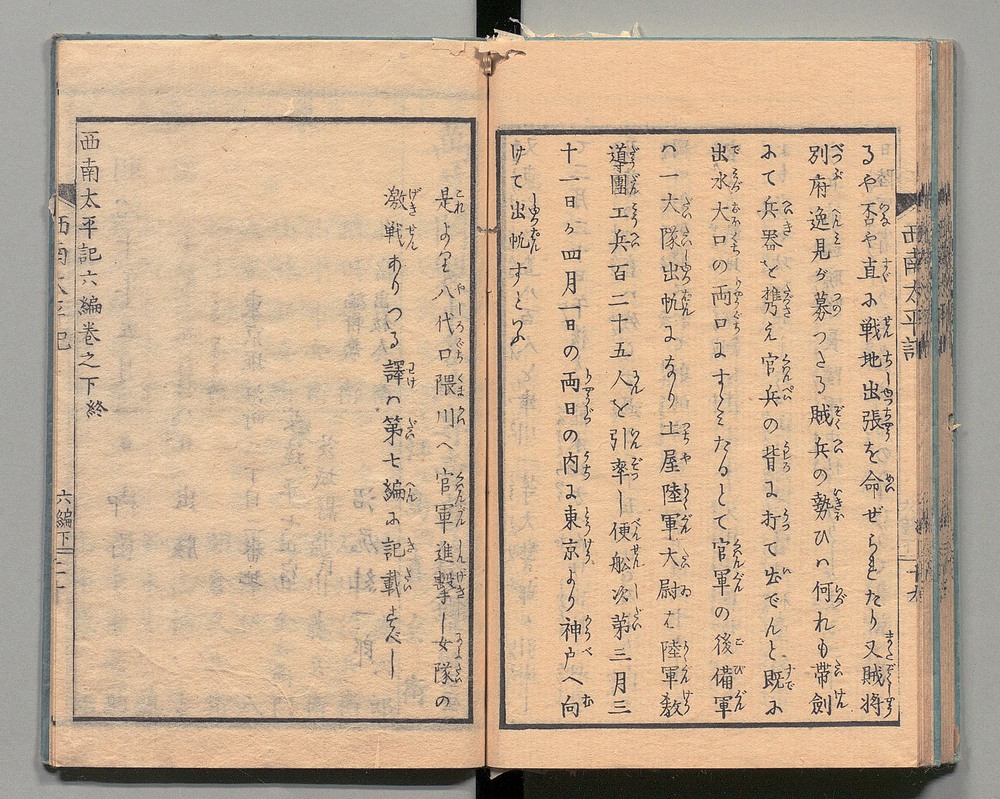 るや否や直に戦地出張を命ぜられたり又賊将
別府逸見が募つたる賊兵の勢ひハ何れも帯劍
にて兵器を携え官兵の背に打て出でんと既に
出水大口の両口にすゝみたるとて官軍の後備軍
ハ一大隊出帆になり土屋陸軍大尉は陸軍教
導團工兵百二十五人を引率し便舩次第三月三
十一日か四月一日の両日の内に東京より神戸へ向
けて出帆すといふ
西南太平記
是より八代口隈川へ官軍進撃し女隊の
激戦ありつる譯ハ第七編に記載すべし
西南太平記六編巻之下終
西南太平記
六編下 二十